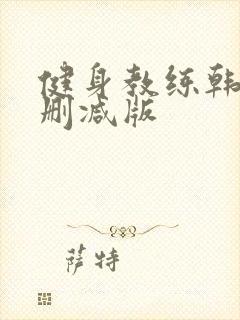 健身教练韩
删减版
萨特